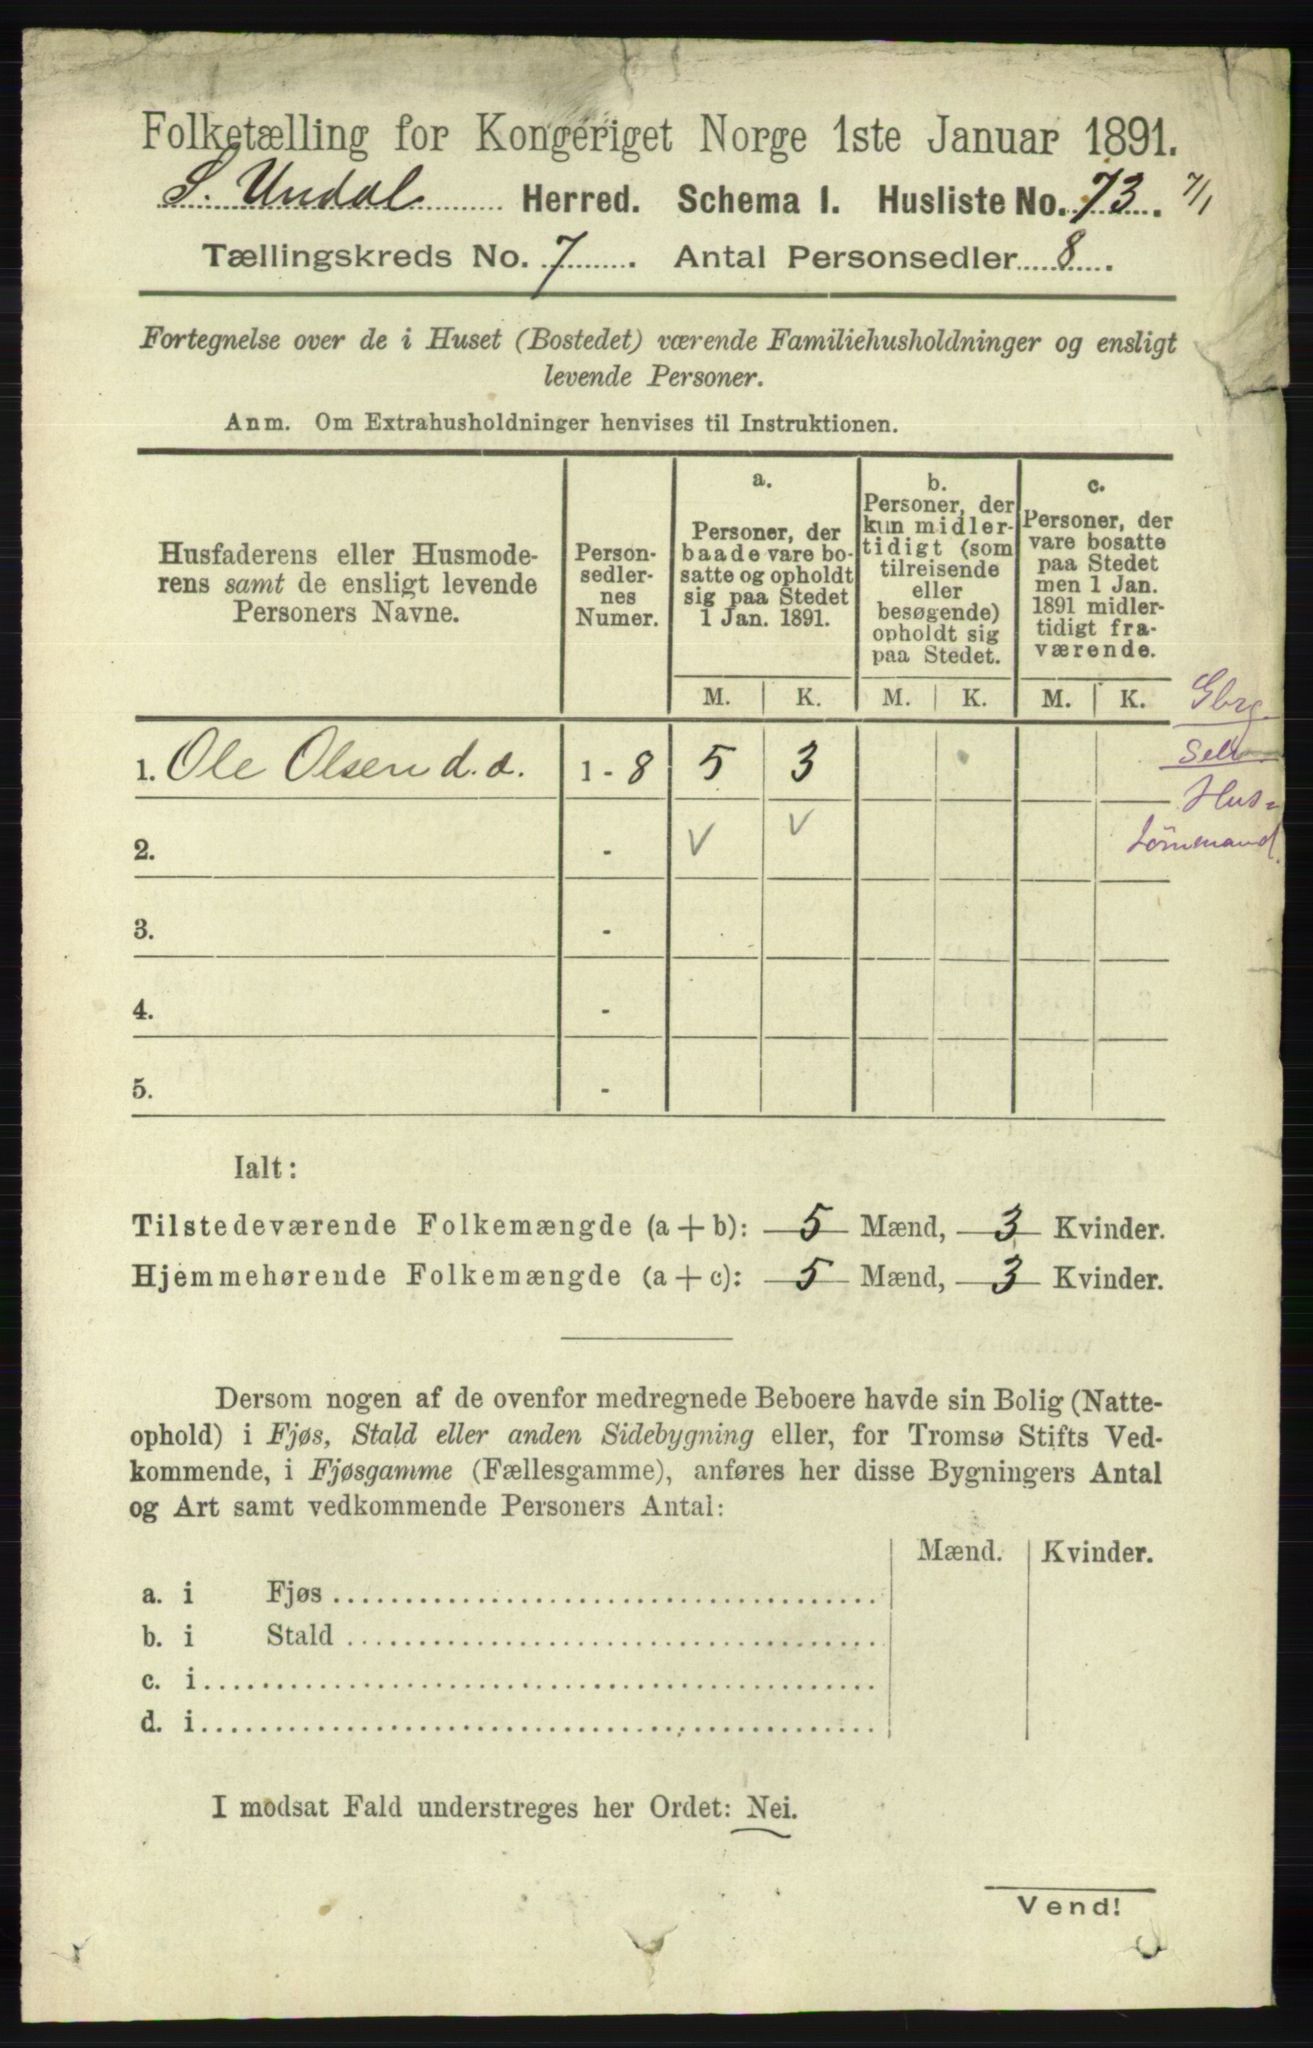 Folketælling for Kongeriget Norge 1ste Januar 1891.
S. Undal Herred. Schema I. Husliste No. 73. 7/1
Tællingskreds No. 7. Antal Personsedler 8.
Fortegnelse over de i Huset (Bostedet) værende Familiehusholdninger og ensligt
levende Personer.
Anm. Om Extrahusholdninger henvises til Instruktionen.
Husfaderens eller Husmode-
rens samt de ensligt levende
Personers Navne.
Person-
sedler-
nes
Numer.
a.
Personer, der
baade vare bo-
satte og opholdt
sig paa Stedet
1 Jan. 1891.
b.
Personer, der
kun midler-
tidigt (som
tilreisende
eller
besøgende)
opholdt sig
paa Stedet.
c.
Personer, der
vare bosatte
paa Stedet
men 1 Jan.
1891 midler-
tidigt fra-
værende.
M. K. M. K. M. K.
Gbrg.
1. Ole Olsen d. a. 1 - 8 5 3
Selv
Hus=
2. - V V
3. -
4. -
5. -
Ialt:
Tilstedeværende Folkemængde (a + b): 5 Mænd, 3 Kvinder.
Hjemmehørende Folkemængde (a + c): 5 Mænd, 3 Kvinder.
Dersom nogen af de ovenfor medregnede Beboere havde sin Bolig (Natte-
ophold) i Fjøs, Stald eller anden Sidebygning eller, for Tromsø Stifts Ved-
kommende, i Fjøsgamme (Fællesgamme), anføres her disse Bygningers Antal
og Art samt vedkommende Personers Antal:
Mænd. Kvinder.
a. i Fjøs
b. i Stald
c. i
d. i
I modsat Fald understreges her Ordet: Nei.
Vend!